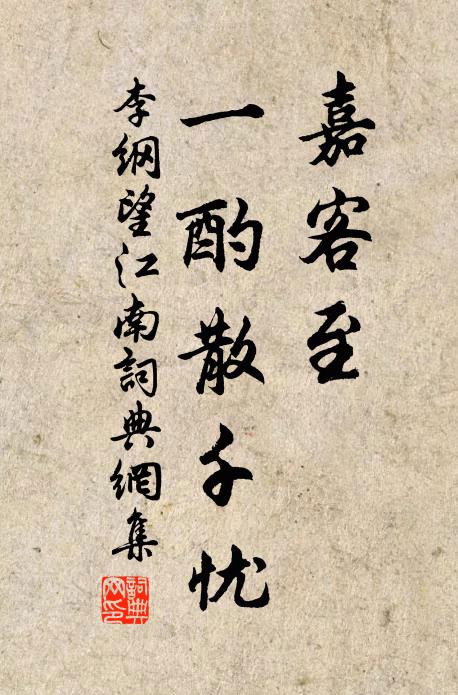 嘉客至
一酌散千忧
李纲望江南詞典網集
詞典網印